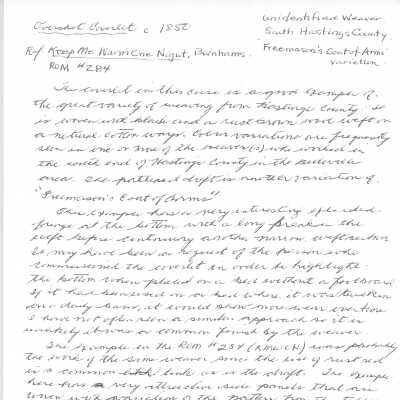 Overshot Coverlet c 1850
Unidentified Weaver
South Hastings County
"Freemason's Coat of Arms"
variation
Ref Keep Me Warm One Night, Burnhams.
ROM #284
The coverlet in this case is a good example of
the great variety of weaving from Hastings County. It
is woven with black and a rust brown wool weft on
a natural cotton warp. Color variations are frequently
seen in one or more of the weaver(s) who worked in
the south end of Hastings County in the Belleville
area. The patterned draft is another variation of
"Freemason's Coat of Arms"
This example has a very interesting extended
fringe at the bottom with a long break in the
weft before continuing another narrow weft section
It may have been a request of the person who
commissioned the coverlet in order to highlight
the bottom when placed on a bed without a footboard
If it had been used on a bed where it was tucked in
on a daily basis, it would show more wear over time
I have not often seen a similar approach so it is
unlikely it was a common finish by the weaver
The example in the ROM #284 (KMWON) was probably
the work of the same weaver since the use of rust red
is a common link as is the draft. The example
here has a very attractive side panels that are
woven with a variation of the pattern from the